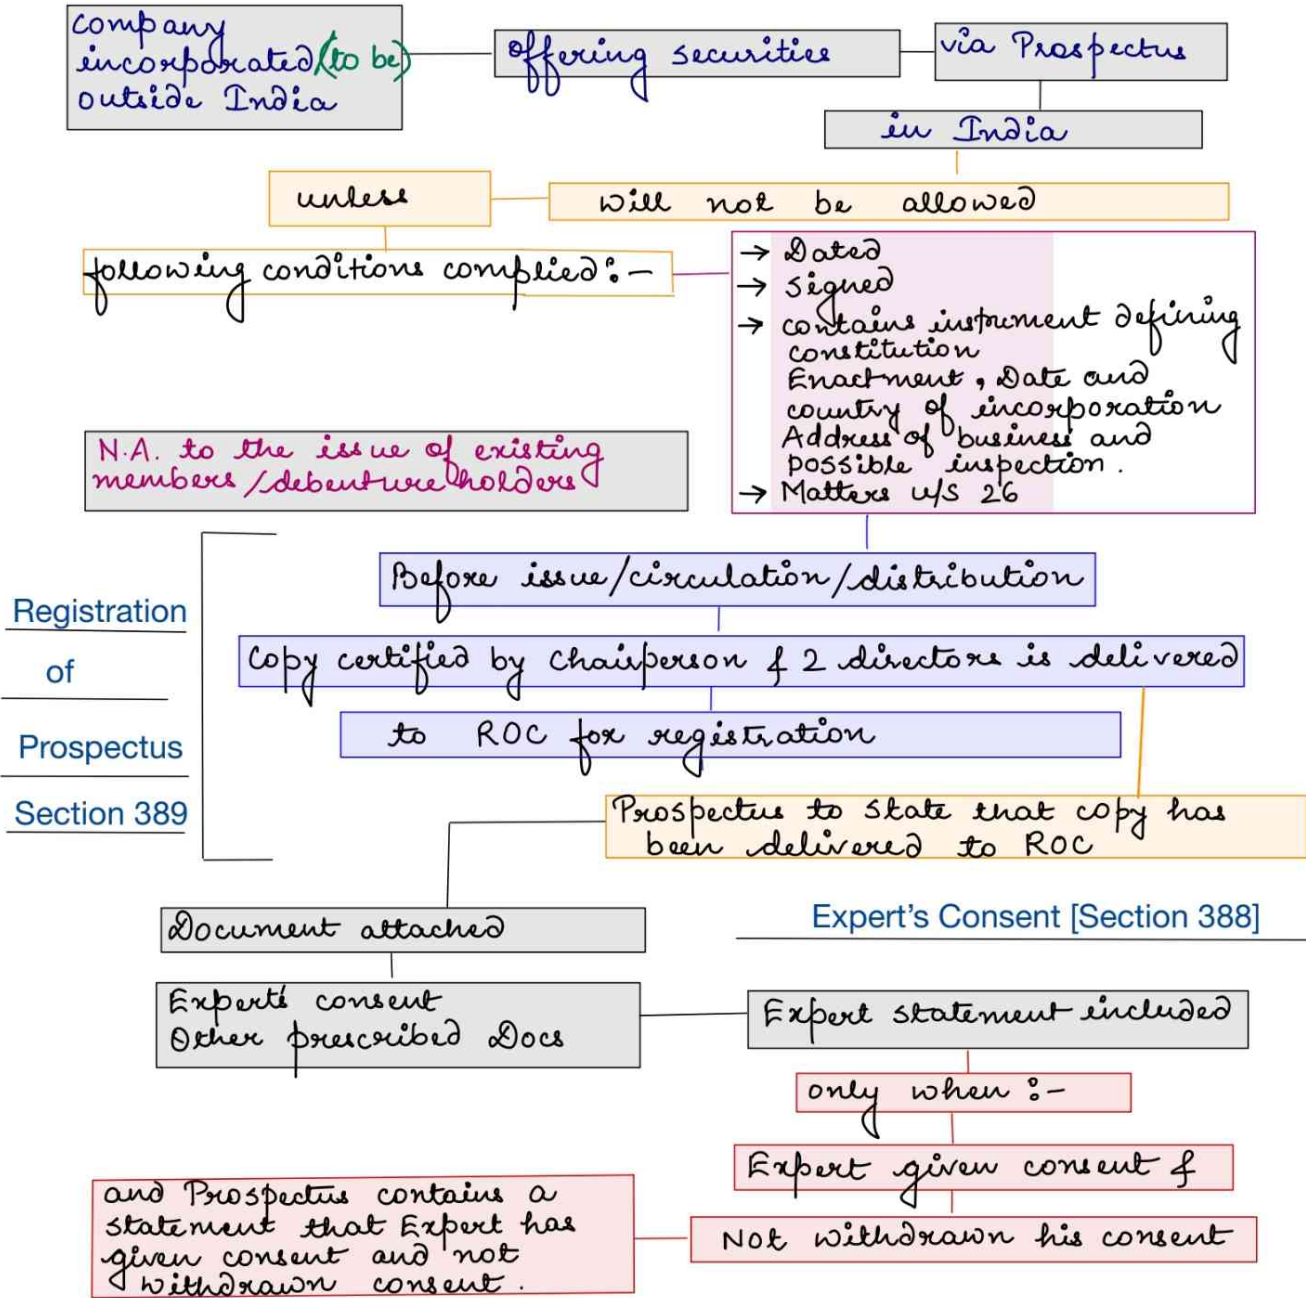 company
incorporated (to be)
outside India
offering securities
via Prospectus
in India
will not be allowed
unless
following conditions complied:-
→ Dated
→ signed
→ contains instrument defining
constitution
Enactment, Date and
country of incorporation
Address of business and
possible inspection.
→ Matters u/s 26
N.A. to the issue of existing
members/debenture holders
Registration
of
Prospectus
Section 389
Before issue/circulation/distribution
Copy certified by Chairperson & 2 directors is delivered
to ROC for registration
Prospectus to state that copy has
been delivered to ROC
Document attached
Expert's consent
Other prescribed Docs
Expert's Consent [Section 388]
Expert statement included
only when :-
Expert given consent &
Not withdrawn his consent
and Prospectus contains a
statement that Expert has
given consent and not
withdrawn consent.